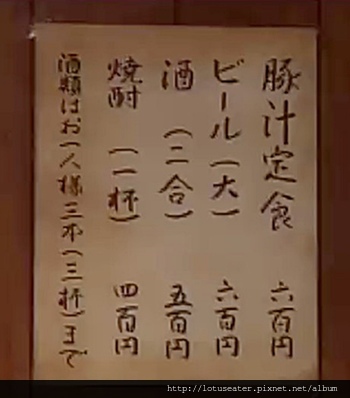 豚汁定食 六百円
ビール(大) 六百円
酒(二合) 五百円
焼酎(一杯) 四百円
酒類はお一人様三本(三杯)まで
http://lotuseater.pixnet.net/album